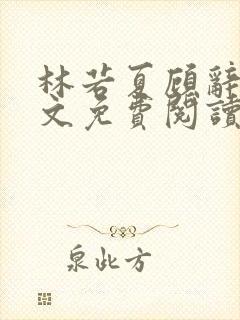 林若夏顾辞
文免費閱讀
泉此方